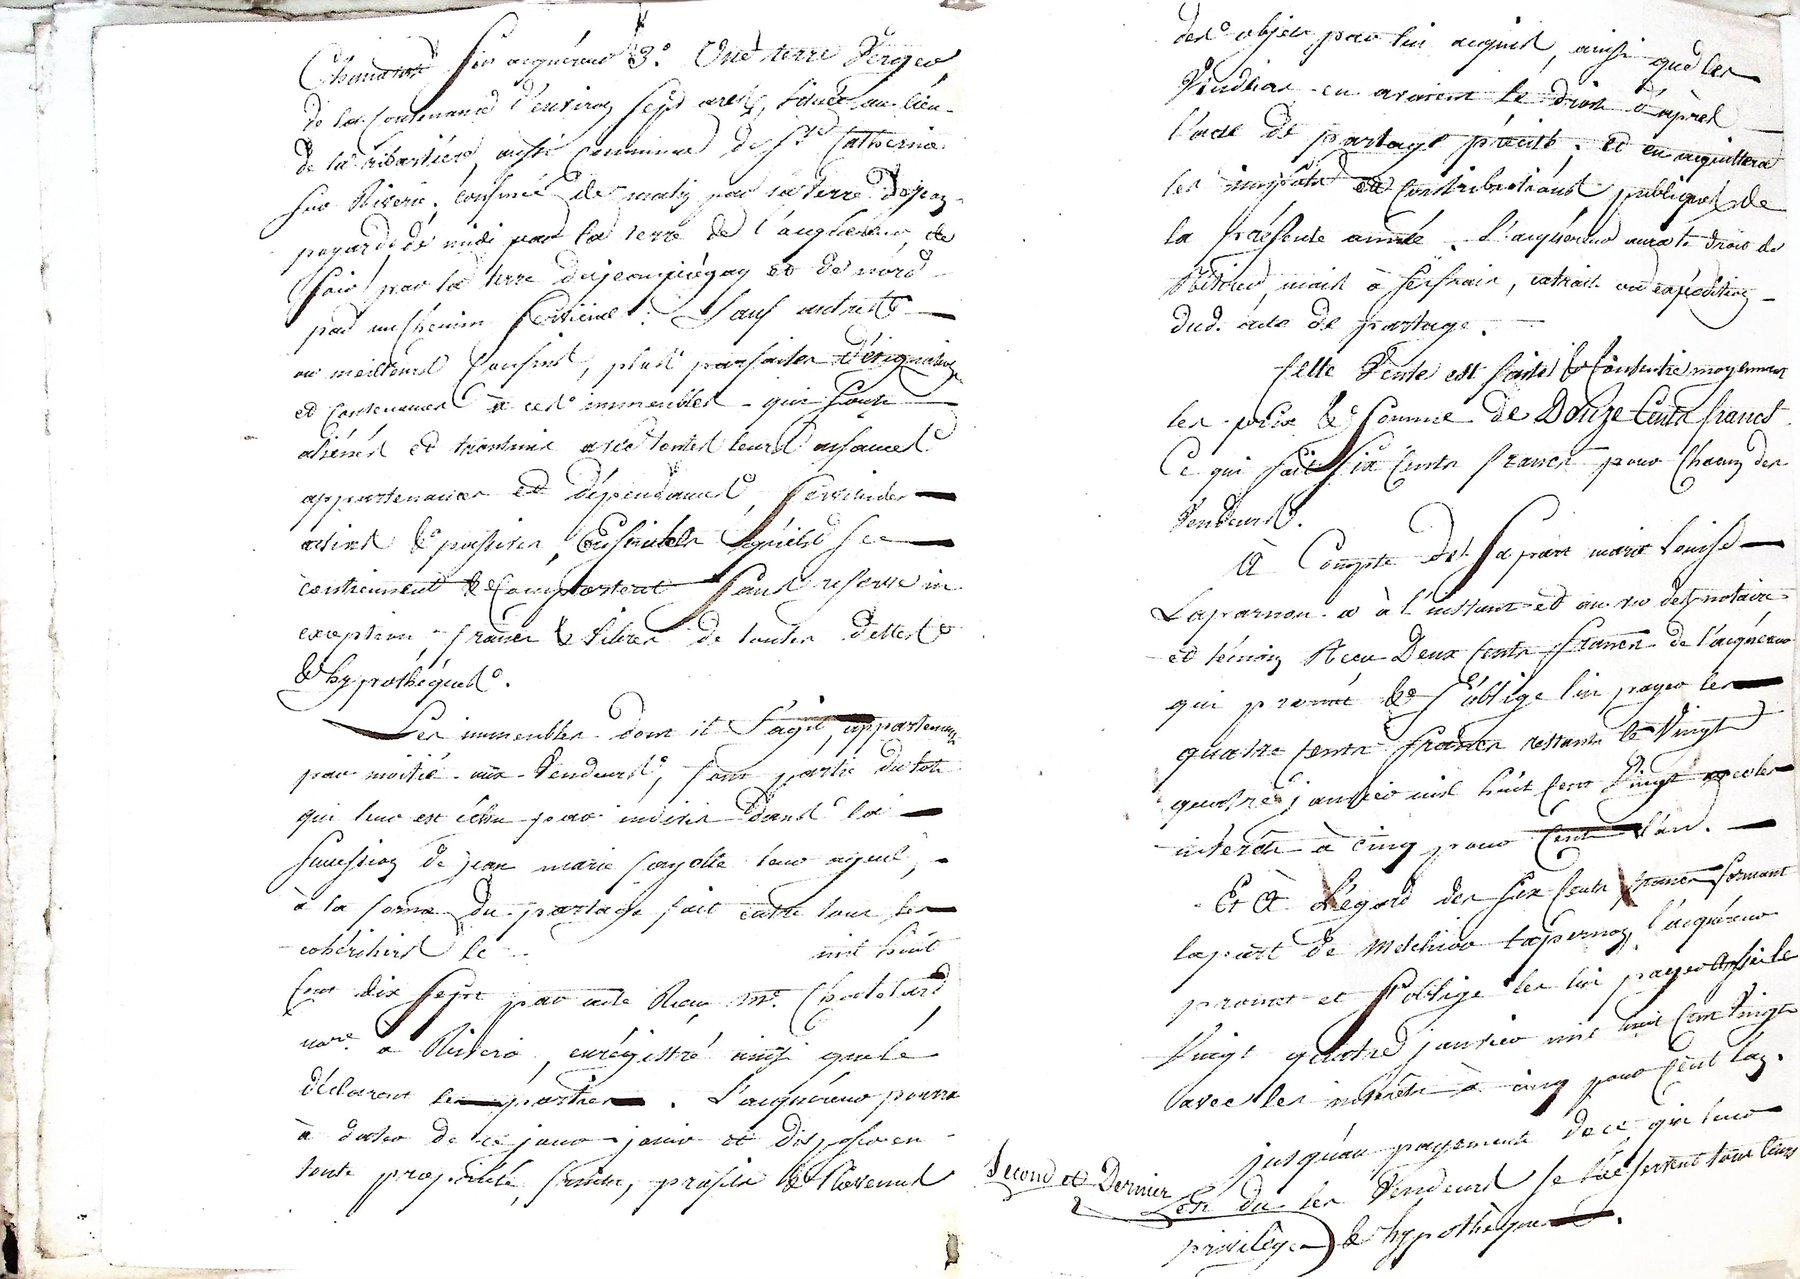 Sis acquéreur 3.° Une terre Verger
de la Contenance d'environ Sept ares, Située au lieu
de la ribartière, aussi Commune de Ste Catherine
sur Riverie, confinée de matin par la terre de jean
pogard, de midi par la terre de l'acquéreur, de
soir par la terre de jean piégay et de nord
par un chemin Serviciue. Sauf autres
ou meilleurs Confins, plus parfaites désignations
et Contenances à ces immeubles qui Sont
aliénés et transmis avec toutes leurs aisances
appartenances et dépendances, Servitudes
actives & passives, Ensemble qu'ils se
contiennent & Comportent Sans reserve ni
exception, francs & libres de toutes dettes
& hypothèques.
Les immeubles dont il S'agit, appartenant
par moitié aux Vendeurs, font partie du lot
qui leur est échu par indivis dans la
succession de jean marie fayolle leur ayeul,
à la forme du partage fait entre tous les
cohéritiers le mil huit
Cent dix Sept par acte Reçu Me. Chatelard
nore. à Riverie, enrégistré ainsi que le
déclarent les parties. L'acquéreur pourra
à dater de ce jour jouir et disposer en
toute propriété, fruits, profits & Revenus
des objets par lui acquis, ainsi que les
Vendeurs en avaient le droit d'après
l'acte de partage précité; et en acquittera
les impôts et Contributions publiques de
la présente année. L'acquéreur aura le droit de
Retirer, mais à ses frais, extrait ou expédition
dud. acte de partage.
Cette Vente est faite & Consentie moyennant
les prix & Somme de Douze Cents francs
Ce qui fait Six Cents francs pour Chacun des
Vendeurs.
À Compte de Sa part marie Louise
Laparnon a à l'instant et au vu des notaire
et témoins Reçu Deux Cents francs de l'acquéreur
qui promet & S'oblige lui payer les
quatre Cents francs restants le Vingt
quatre janvier mil huit Cent Vingt avec les
intérêts à cinq pour Cent l'an.
Et À L'égard des Six Cents francs formant
la part de Melchior Lapernon, l'acquéreur
promet et S'oblige les lui payer aussi le
Vingt quatre janvier mil huit Cent Vingt
avec les intérêts à cinq pour Cent l'an.
jusqu'au payement de ce qui leur
Second et Dernier
Est du les Vendeurs se réservent tous leurs
privilèges & hypothèques.